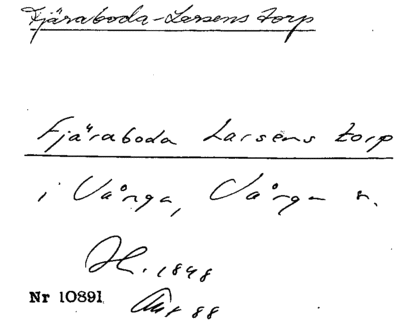 Fjäraboda-Larsens torp
Fjäraboda Larsens torp
i Vånga, Vånga s.
H. 1848
Nr 10891 88